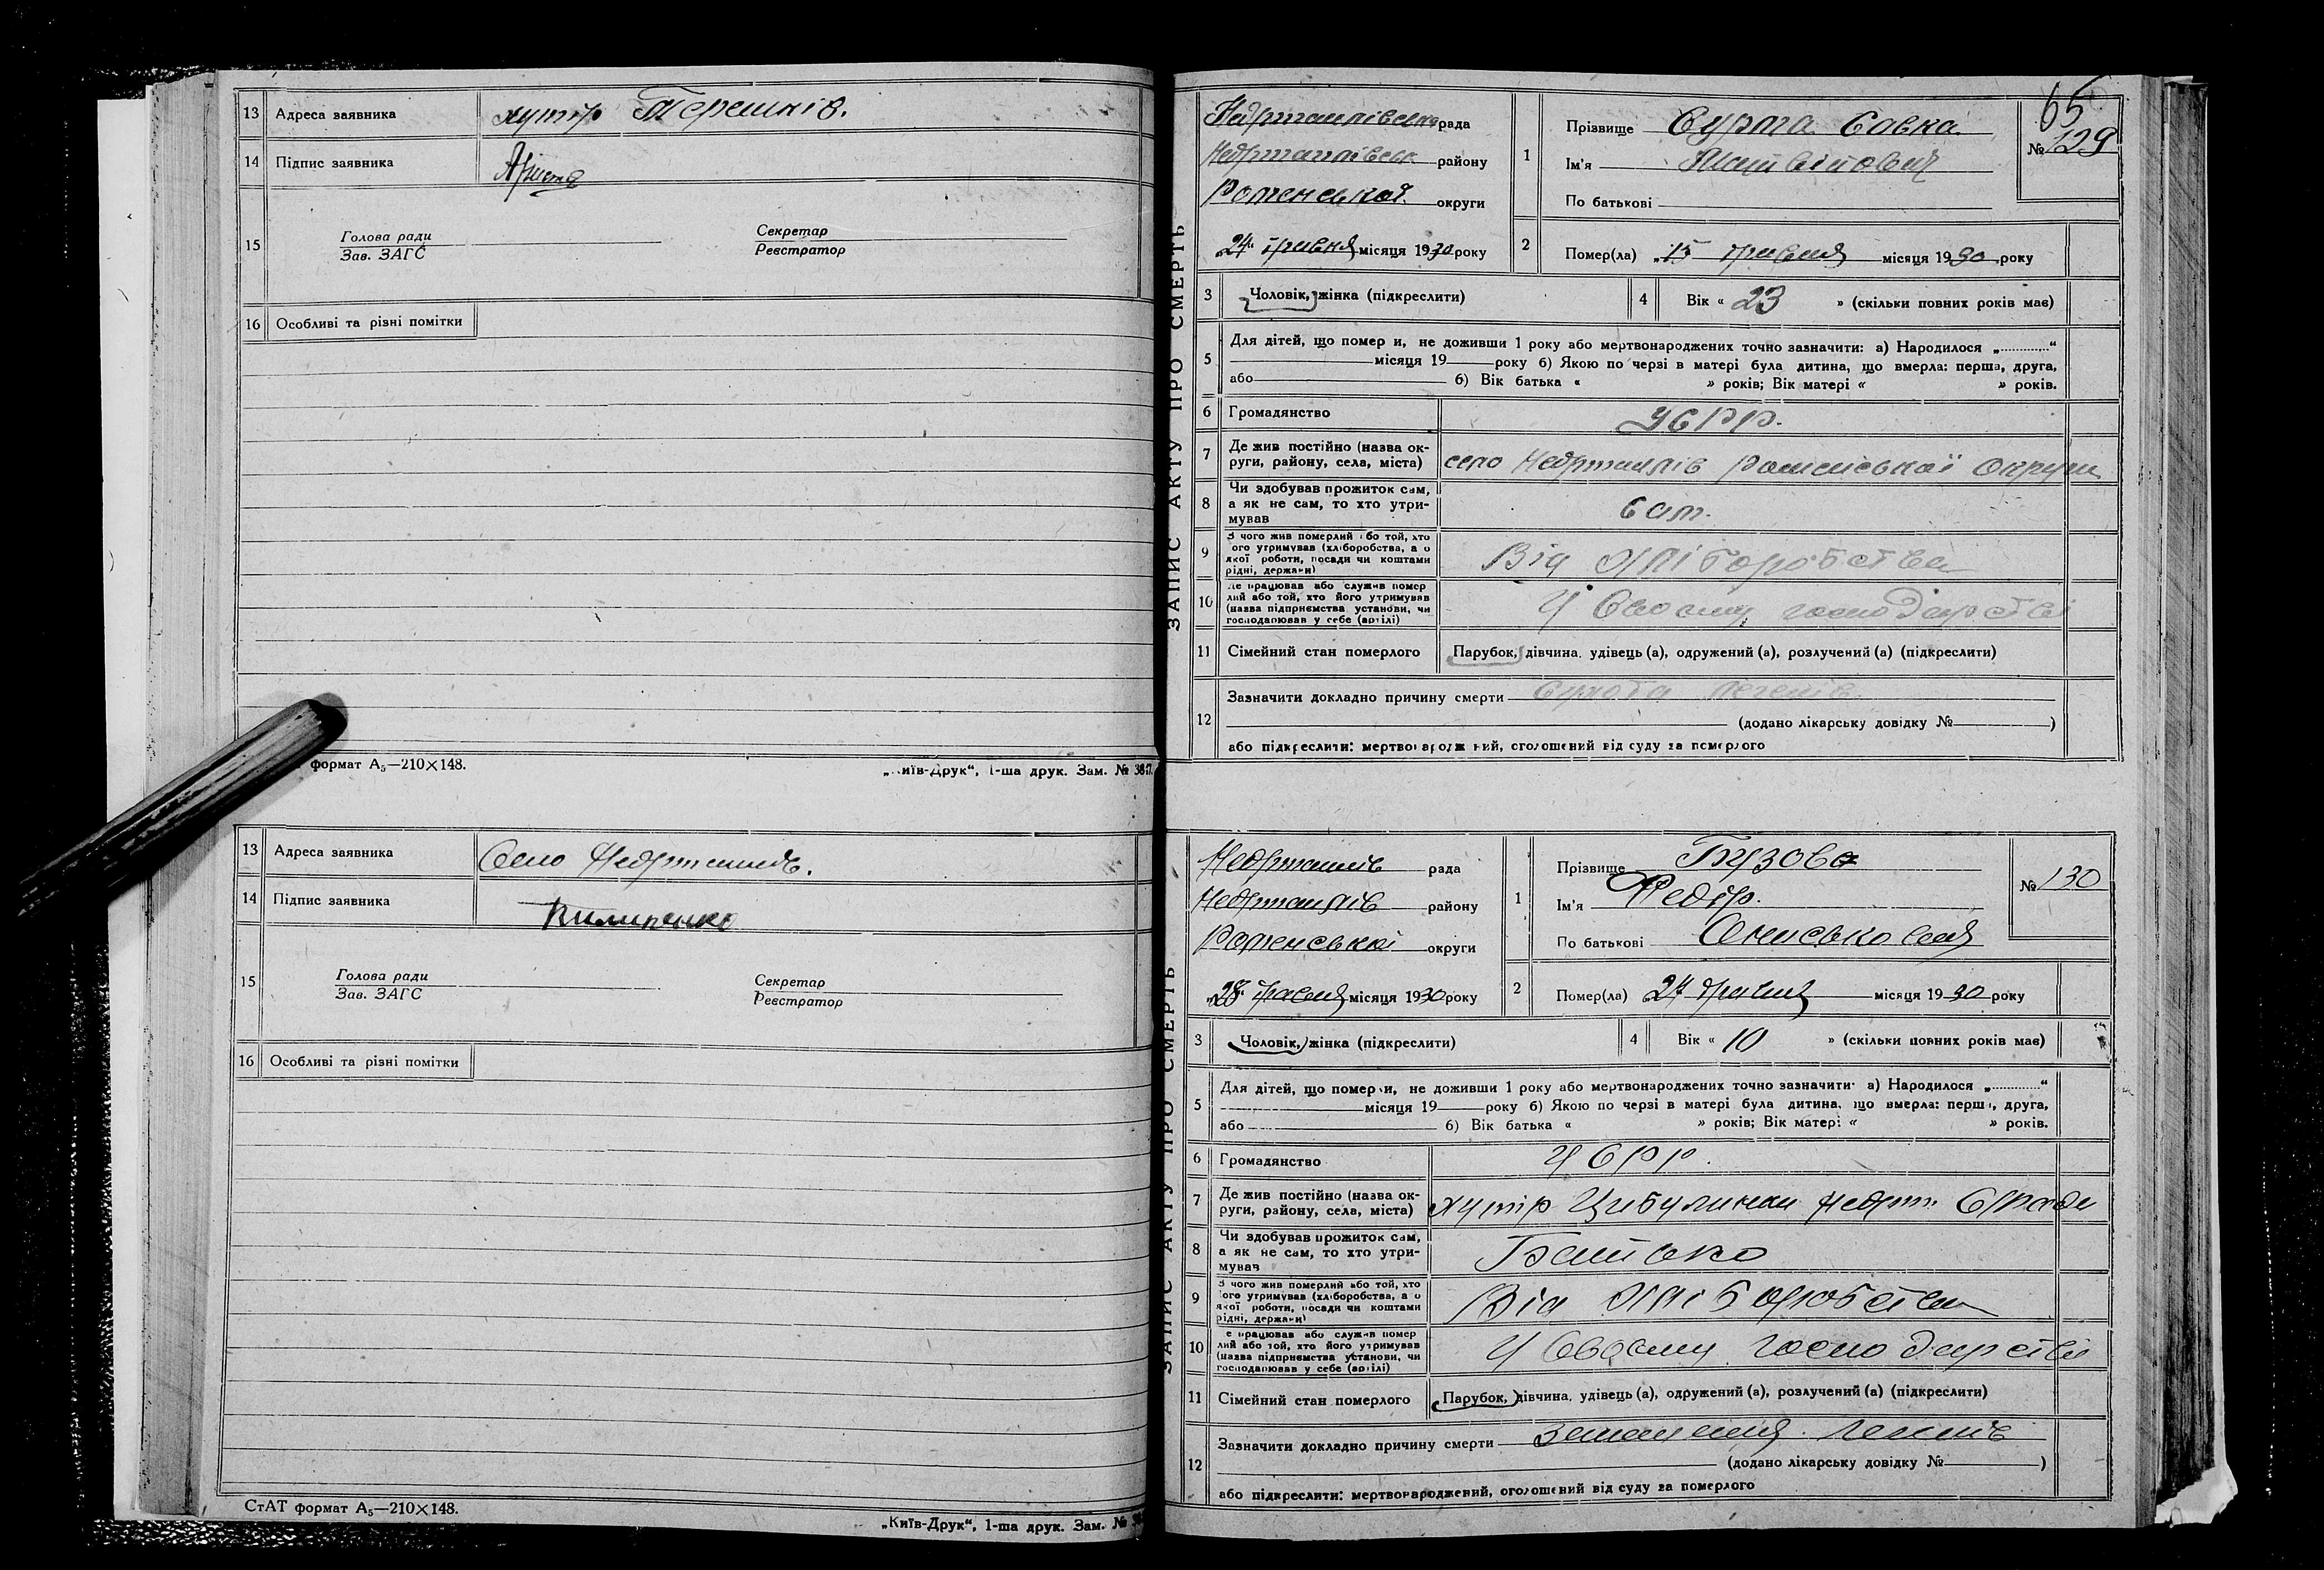 13 Адреса заявника хутір Терешків.
14 Підпис заявника
15 Голова ради Секретар
Зав. ЗАГС Реєстратор
16 Особливі та різні помітки
формат А5—210×148.
„Київ-Друк“, 1-ша друк. Зам. №
13 Адреса заявника Село Недригайлів.
14 Підпис заявника Пилипенко
15 Голова ради Секретар
Зав. ЗАГС Реєстратор
16 Особливі та різні помітки
СтАТ формат А5—210×148.
„Київ-Друк“, 1-ша друк. Зам. №
ЗАПИС АКТУ ПРО СМЕРТЬ
65
№ 129
Недригайлівська рада
Недригайлівськ району
Роменської округи
„24“ травня місяця 1930 року
1 Прізвище Сурма Савка
Ім'я Матвійович
По батькові
2 Помер(ла) „15 травня місяця 1930 року
3 Чоловік, жінка (підкреслити)
4 Вік « 23 » (скільки повних років має)
5 Для дітей, що помер и, не доживши 1 року або мертвонароджених точно зазначити: а) Народилося „............“
місяця 19 року б) Якою по черзі в матері була дитина, що вмерла: перша, друга,
або б) Вік батька « » років; Вік матері « » років.
6 Громадянство УСРР.
7 Де жив постійно (назва ок-
руги, району, села, міста) село Недригайлів Роменської округи
8 Чи здобував прожиток сам,
а як не сам, то хто утри-
мував сам.
9 З чого жив померлий або той, хто
його утримував (хліборобства, а о
якої роботи, посади чи коштами
рідні, держави) Від хліборобства
10 Де працював або служив помер
лий або той, хто його утримував
(назва підприємства установи, чи
господарював у себе (артілі) У своєму господарстві
11 Сімейний стан померлого Парубок, дівчина, удівець (а), одружений (а), розлучений (а) (підкреслити)
12 Зазначити докладно причину смерти Сухота легенів
(додано лікарську довідку № )
або підкреслити: мертвонароджений, оголошений від суду за померлого
ЗАПИС АКТУ ПРО СМЕРТЬ
№ 130
Недригайлів рада
Недригайлів району
Роменської округи
„28“ травня місяця 1930 року
1 Прізвище
Ім'я Федір.
По батькові Ониськович
2 Помер(ла) 24 травня місяця 1930 року
3 Чоловік, жінка (підкреслити)
4 Вік « 10 » (скільки повних років має)
5 Для дітей, що померли, не доживши 1 року або мертвонароджених точно зазначити: а) Народилося „............“
місяця 19 року б) Якою по черзі в матері була дитина, що вмерла: перша, друга,
або б) Вік батька « » років; Вік матері « » років.
6 Громадянство УСРР.
7 Де жив постійно (назва ок-
руги, району, села, міста) хутір Цибулинки Недриг. С/ради
8 Чи здобував прожиток сам,
а як не сам, то хто утри-
мував Батько
9 З чого жив померлий або той, хто
його утримував (хліборобства, а о
якої роботи, посади чи коштами
рідні, держави) Від хліборобства
10 Де працював або служив помер
лий або той, хто його утримував
(назва підприємства установи, чи
господарював у себе (артілі) У своєму господарстві
11 Сімейний стан померлого Парубок, дівчина, удівець (а), одружений (а), розлучений (а) (підкреслити)
12 Зазначити докладно причину смерти Запалення легенів
(додано лікарську довідку № )
або підкреслити: мертвонароджений, оголошений від суду за померлого